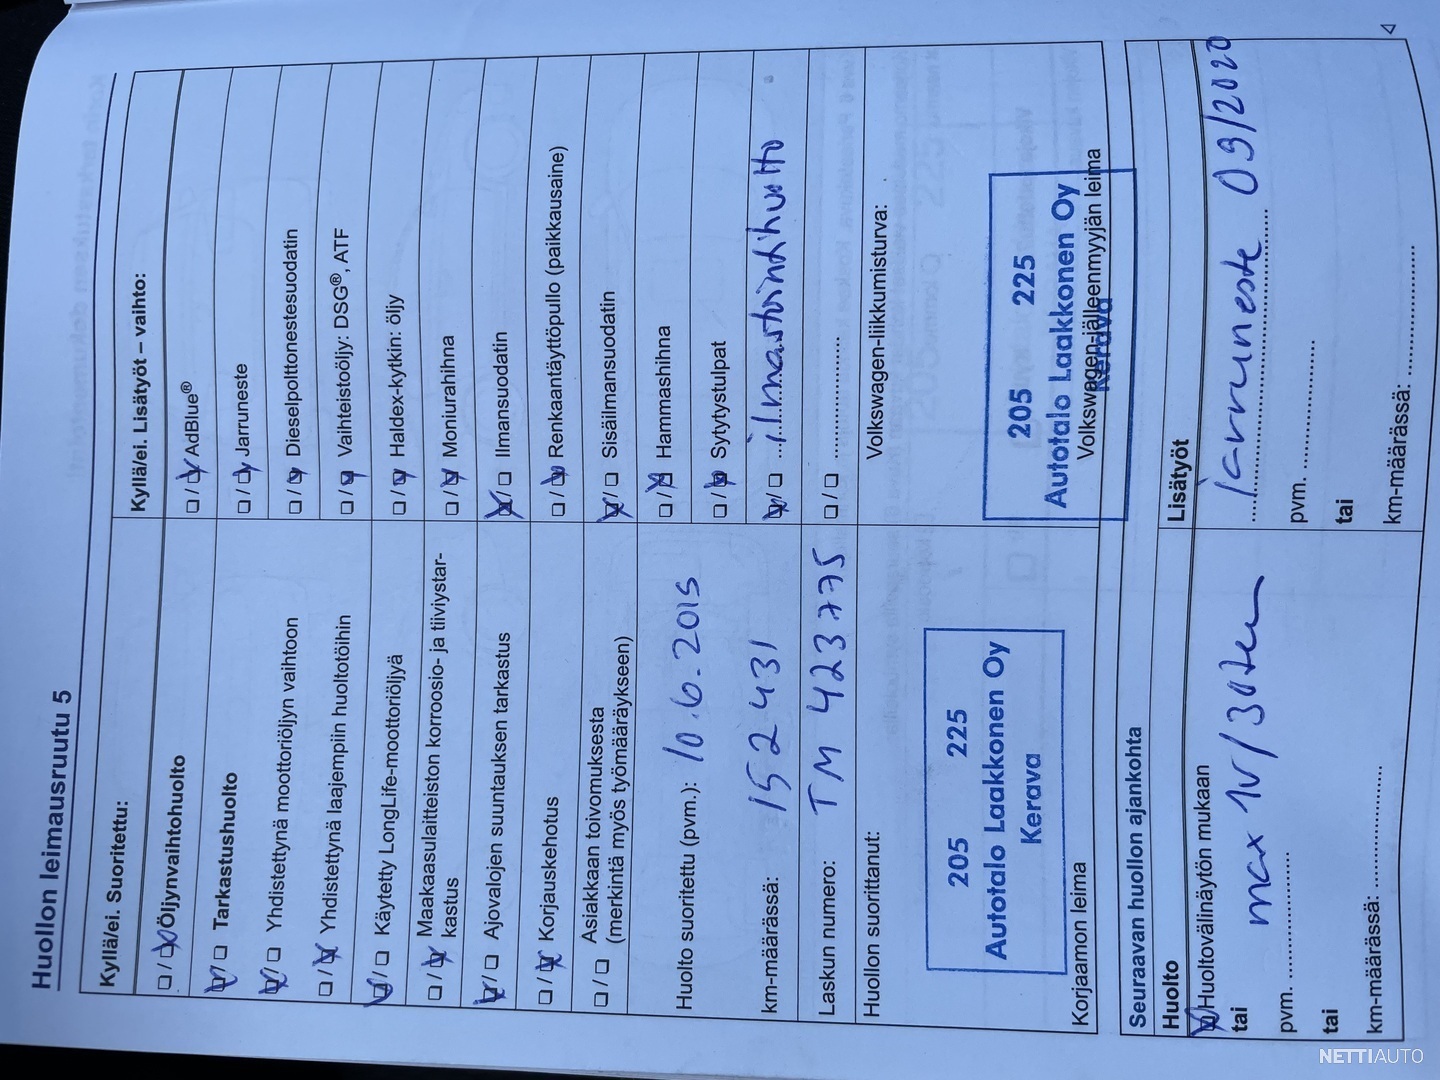 Huollon leimausruutu 5
Kyllä/ei. Suoritettu:
☐ / ☒ Öljynvaihtohuolto
☒ / ☐ Tarkastushuolto
☒ / ☐ Yhdistettynä moottoriöljyn vaihtoon
☐ / ☒ Yhdistettynä laajempiin huoltotöihin
☒ / ☐ Käytetty LongLife-moottoriöljyä
☐ / ☒ Maakaasulaitteiston korroosio- ja tiiviystar-
kastus
☒ / ☐ Ajovalojen suuntauksen tarkastus
☐ / ☒ Korjauskehotus
☐ / ☐ Asiakkaan toivomuksesta
(merkintä myös työmääräykseen)
Huolto suoritettu (pvm.): 10.6.2019
km-määrässä: 152431
Laskun numero: TM 423775
Huollon suorittanut:
205 225
Autotalo Laakkonen Oy
Kerava
Korjaamon leima
Kyllä/ei. Lisätyöt – vaihto:
☐ / ☒ AdBlue®
☐ / ☒ Jarruneste
☐ / ☒ Dieselpolttonestesuodatin
☐ / ☒ Vaihteistoöljy: DSG®, ATF
☐ / ☒ Haldex-kytkin: öljy
☐ / ☒ Moniurahihna
☒ / ☐ Ilmansuodatin
☐ / ☒ Renkaantäyttöpullo (paikkausaine)
☒ / ☐ Sisäilmansuodatin
☐ / ☒ Hammashihna
☐ / ☒ Sytytystulpat
☒ / ☐ ilmastointihuolto
☐ / ☐ ....................
Volkswagen-liikkumisturva:
205 225
Autotalo Laakkonen Oy
Kerava
Volkswagen-jälleenmyyjän leima
Seuraavan huollon ajankohta
Huolto
☒ Huoltovälinäytön mukaan
tai max 1v/30tkm
pvm. ....................
tai
km-määrässä: ....................
Lisätyöt
Jarruneste 09/2020
pvm. ....................
tai
km-määrässä: ....................
NETTIAUTO